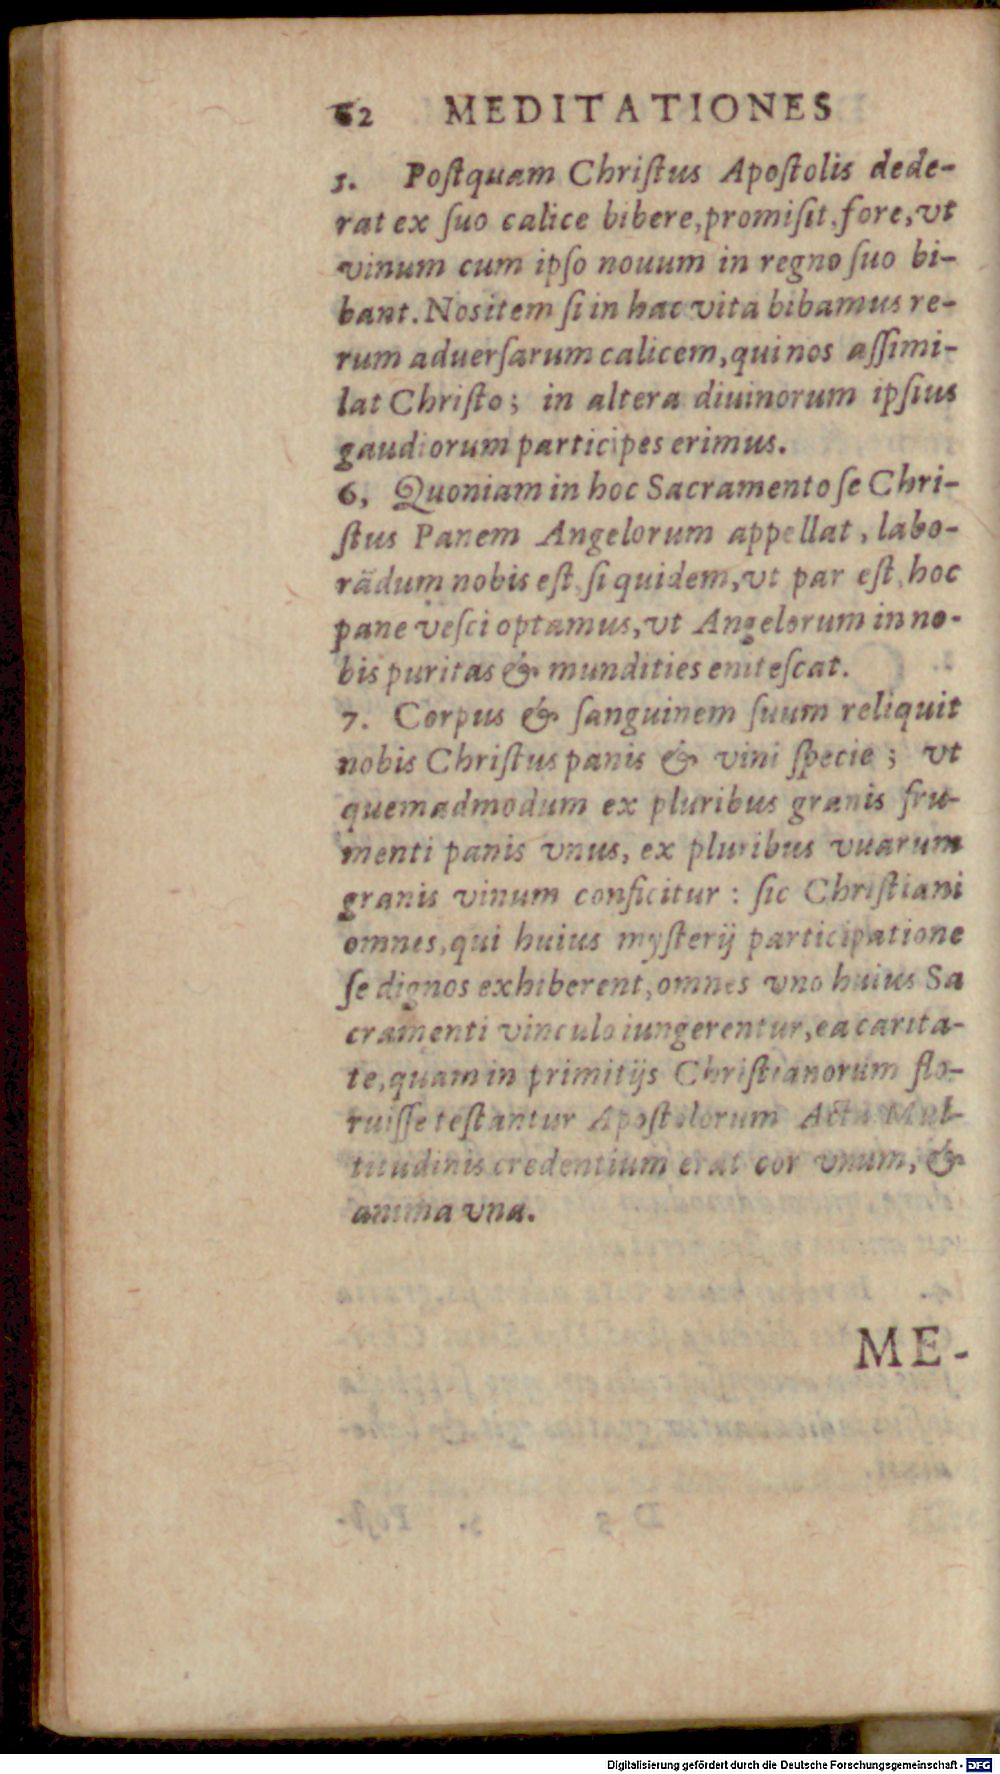 62 MEDITATIONES
5. Postquam Christus Apostolis dede-
rat ex suo calice bibere, promisit, fore, vt
vinum cum ipso nouum in regno suo bi-
bant. Nos item si in hac vita bibamus re-
rum aduersarum calicem, qui nos assimi-
lat Christo; in altera diuinorum ipsius
gaudiorum participes erimus.
6, Quoniam in hoc Sacramento se Chri-
stus Panem Angelorum appellat, labo-
rãdum nobis est, si quidem, vt par est, hoc
pane vesci optamus, vt Angelorum in no-
bis puritas & mundities enitescat.
7. Corpus & sanguinem suum reliquit
nobis Christus panis & vini specie; vt
quemadmodum ex pluribus granis fru-
menti panis vnus, ex pluribus vuarum
granis vinum conficitur: sic Christiani
omnes, qui huius mysterij participatione
se dignos exhiberent, omnes vno huius Sa
cramenti vinculo iungerentur, ea carita-
te, quam in primitijs Christianorum flo-
ruisse testantur Apostolorum Acta Mul-
titudinis credentium erat cor vnum, &
anima vna.
ME-
Digitalisierung gefördert durch die Deutsche Forschungsgemeinschaft - DFG